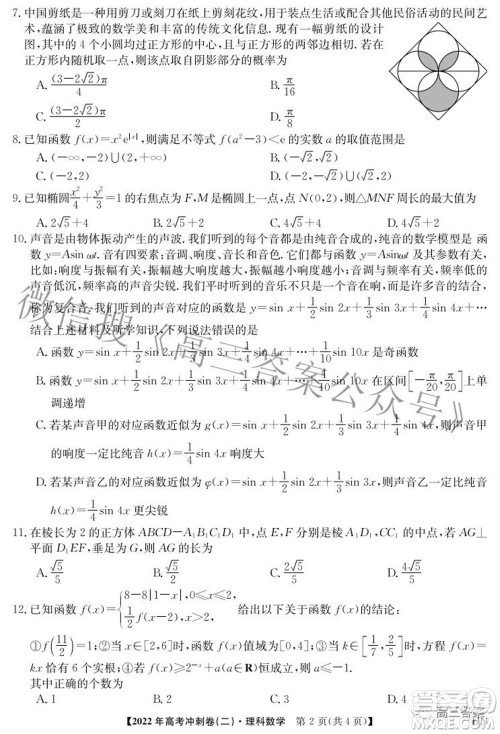 7. 中国剪纸是一种用剪刀或刻刀在纸上剪刻花纹,用于装点生活或配合其他民俗活动的民间艺
术,蕴涵了极致的数学美和丰富的传统文化信息. 现有一幅剪纸的设计
图,其中的 4 个小圆均过正方形的中心,且与正方形的两邻边相切. 若在
正方形内随机取一点,则该点取自阴影部分的概率为
A. (3-2√2)π/4 B. π/16
C. (3-2√2)π/2 D. π/8
8. 已知函数 f(x)=x²e^|x|,则满足不等式 f(a²-3)<e 的实数 a 的取值范围是
A. (-∞,-2)∪(2,+∞) B. (-√2,√2)
C. (-2,2) D. (-2,-√2)∪(√2,2)
9. 已知椭圆 x²/4+y²/3=1 的右焦点为 F,M 是椭圆上一点,点 N(0,2),则△MNF 周长的最大值为
A. 2√5+4 B. 2√5+2 C. √5+4 D. 4√5+2
10. 声音是由物体振动产生的声波. 我们听到的每个音都是由纯音合成的,纯音的数学模型是 函
数 y=Asin ωt. 音有四要素:音调、响度、音长和音色. 它们都与函数 y=Asin ωt 及其参数有关,
比如:响度与振幅有关,振幅越大响度越大,振幅越小响度越小;音调与频率有关,频率低的
声音低沉,频率高的声音尖锐. 我们平时听到的音乐不只是一个音在响,而是许多音的结合,
称为复合音. 我们听到的声音对应的函数是 y=sin x+1/2 sin 2x+1/3 sin 3x+1/4 sin 4x+⋯
结合上述材料及所学知识,下列说法错误的是
A. 函数 y=sin x+1/2 sin 2x+1/3 sin 3x+1/4 sin 4x+⋯+1/10 sin 10x 是奇函数
B. 函数 y=sin x+1/2 sin 2x+1/3 sin 3x+1/4 sin 4x+⋯+1/10 sin 10x,在区间[-π/20,π/20]上单
调递增
C. 若某声音甲的对应函数近似为 g(x)=sin x+1/2 sin 2x+1/3 sin 3x+1/4 sin 4x,则声音甲的
响度一定比纯音 h(x)=1/4 sin 4x 的响度大
D. 若某声音乙的对应函数近似为 φ(x)=sin x+1/2 sin 2x+1/3 sin 3x,则声音乙一定比纯音
h(x)=1/4 sin 4x 更尖锐
11. 在棱长为 2 的正方体 ABCD-A₁B₁C₁D₁ 中,点 E,F 分别是棱 A₁D₁,CC₁ 的中点,若 AG⊥
平面 D₁EF,垂足为 G,则 AG的长为
A. √5/5 B. √5/2 C. 2√5/5 D. 4√5/5
12. 已知函数 f(x)={8-8|1-x|,0≤x≤2, 1/2 f(x-2),x>2, 给出以下关于函数 f(x)的结论:
①f(11/2)=1;②当 x∈[2,6]时,函数 f(x)的值域为[0,4];③当 k∈[1/7,2/5]时,方程 f(x)=
kx 恰有 6 个实根;④若 f(x)≥2^-x+a(x∈R)恒成立,则 a≤-1.
其中正确的个数为
A. 1 B. 2 C. 3 D. 4
【2022 年高考冲刺卷(二)·理科数学 第 2 页(共 4 页)】
微信搜《高三答案公众号》
高三答案